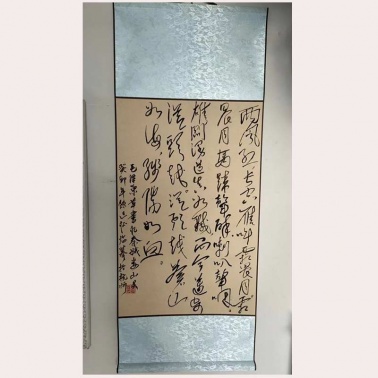 西風烈長空雁叫霜晨月霜
晨月馬蹄聲碎喇叭聲咽
雄關漫道真如鐵而今邁步
從頭越從頭越蒼山
如海殘陽如血
毛澤東草書憶秦娥婁山關
癸卯年